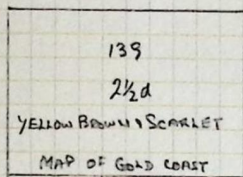 139
2½d
YELLOW BROWN & SCARLET
MAP OF GOLD COAST